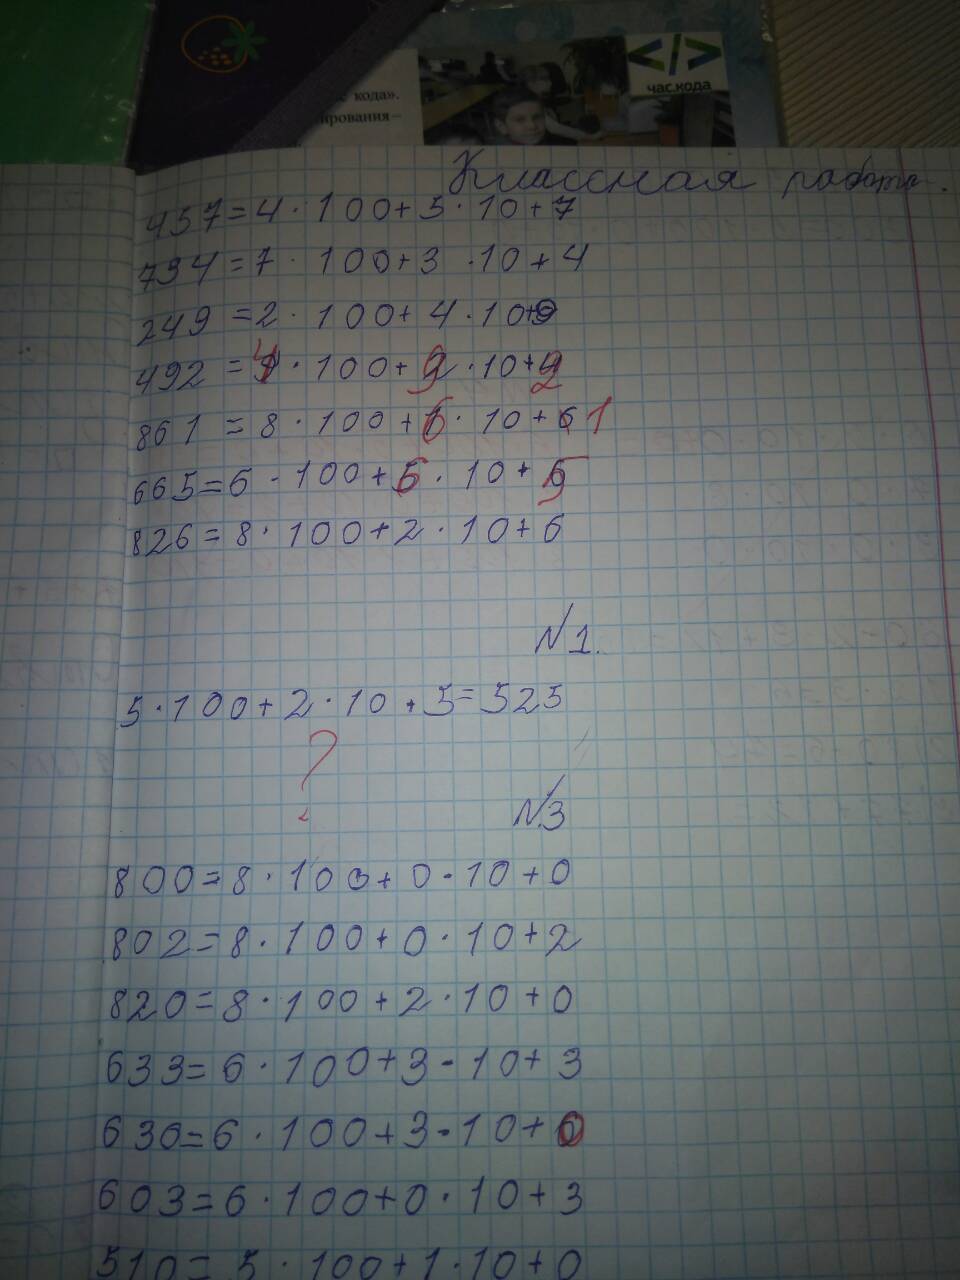 час.кода
кода».
ирования–
Классная работа.
457=4·100+5·10+7
734=7·100+3·10+4
249=2·100+4·10+9
492=4·100+9·10+2
861=8·100+6·10+1
665=6·100+6·10+5
826=8·100+2·10+6
№1.
5·100+2·10+5=525
?
№3
800=8·100+0·10+0
802=8·100+0·10+2
820=8·100+2·10+0
633=6·100+3·10+3
630=6·100+3·10+0
603=6·100+0·10+3
510=5·100+1·10+0